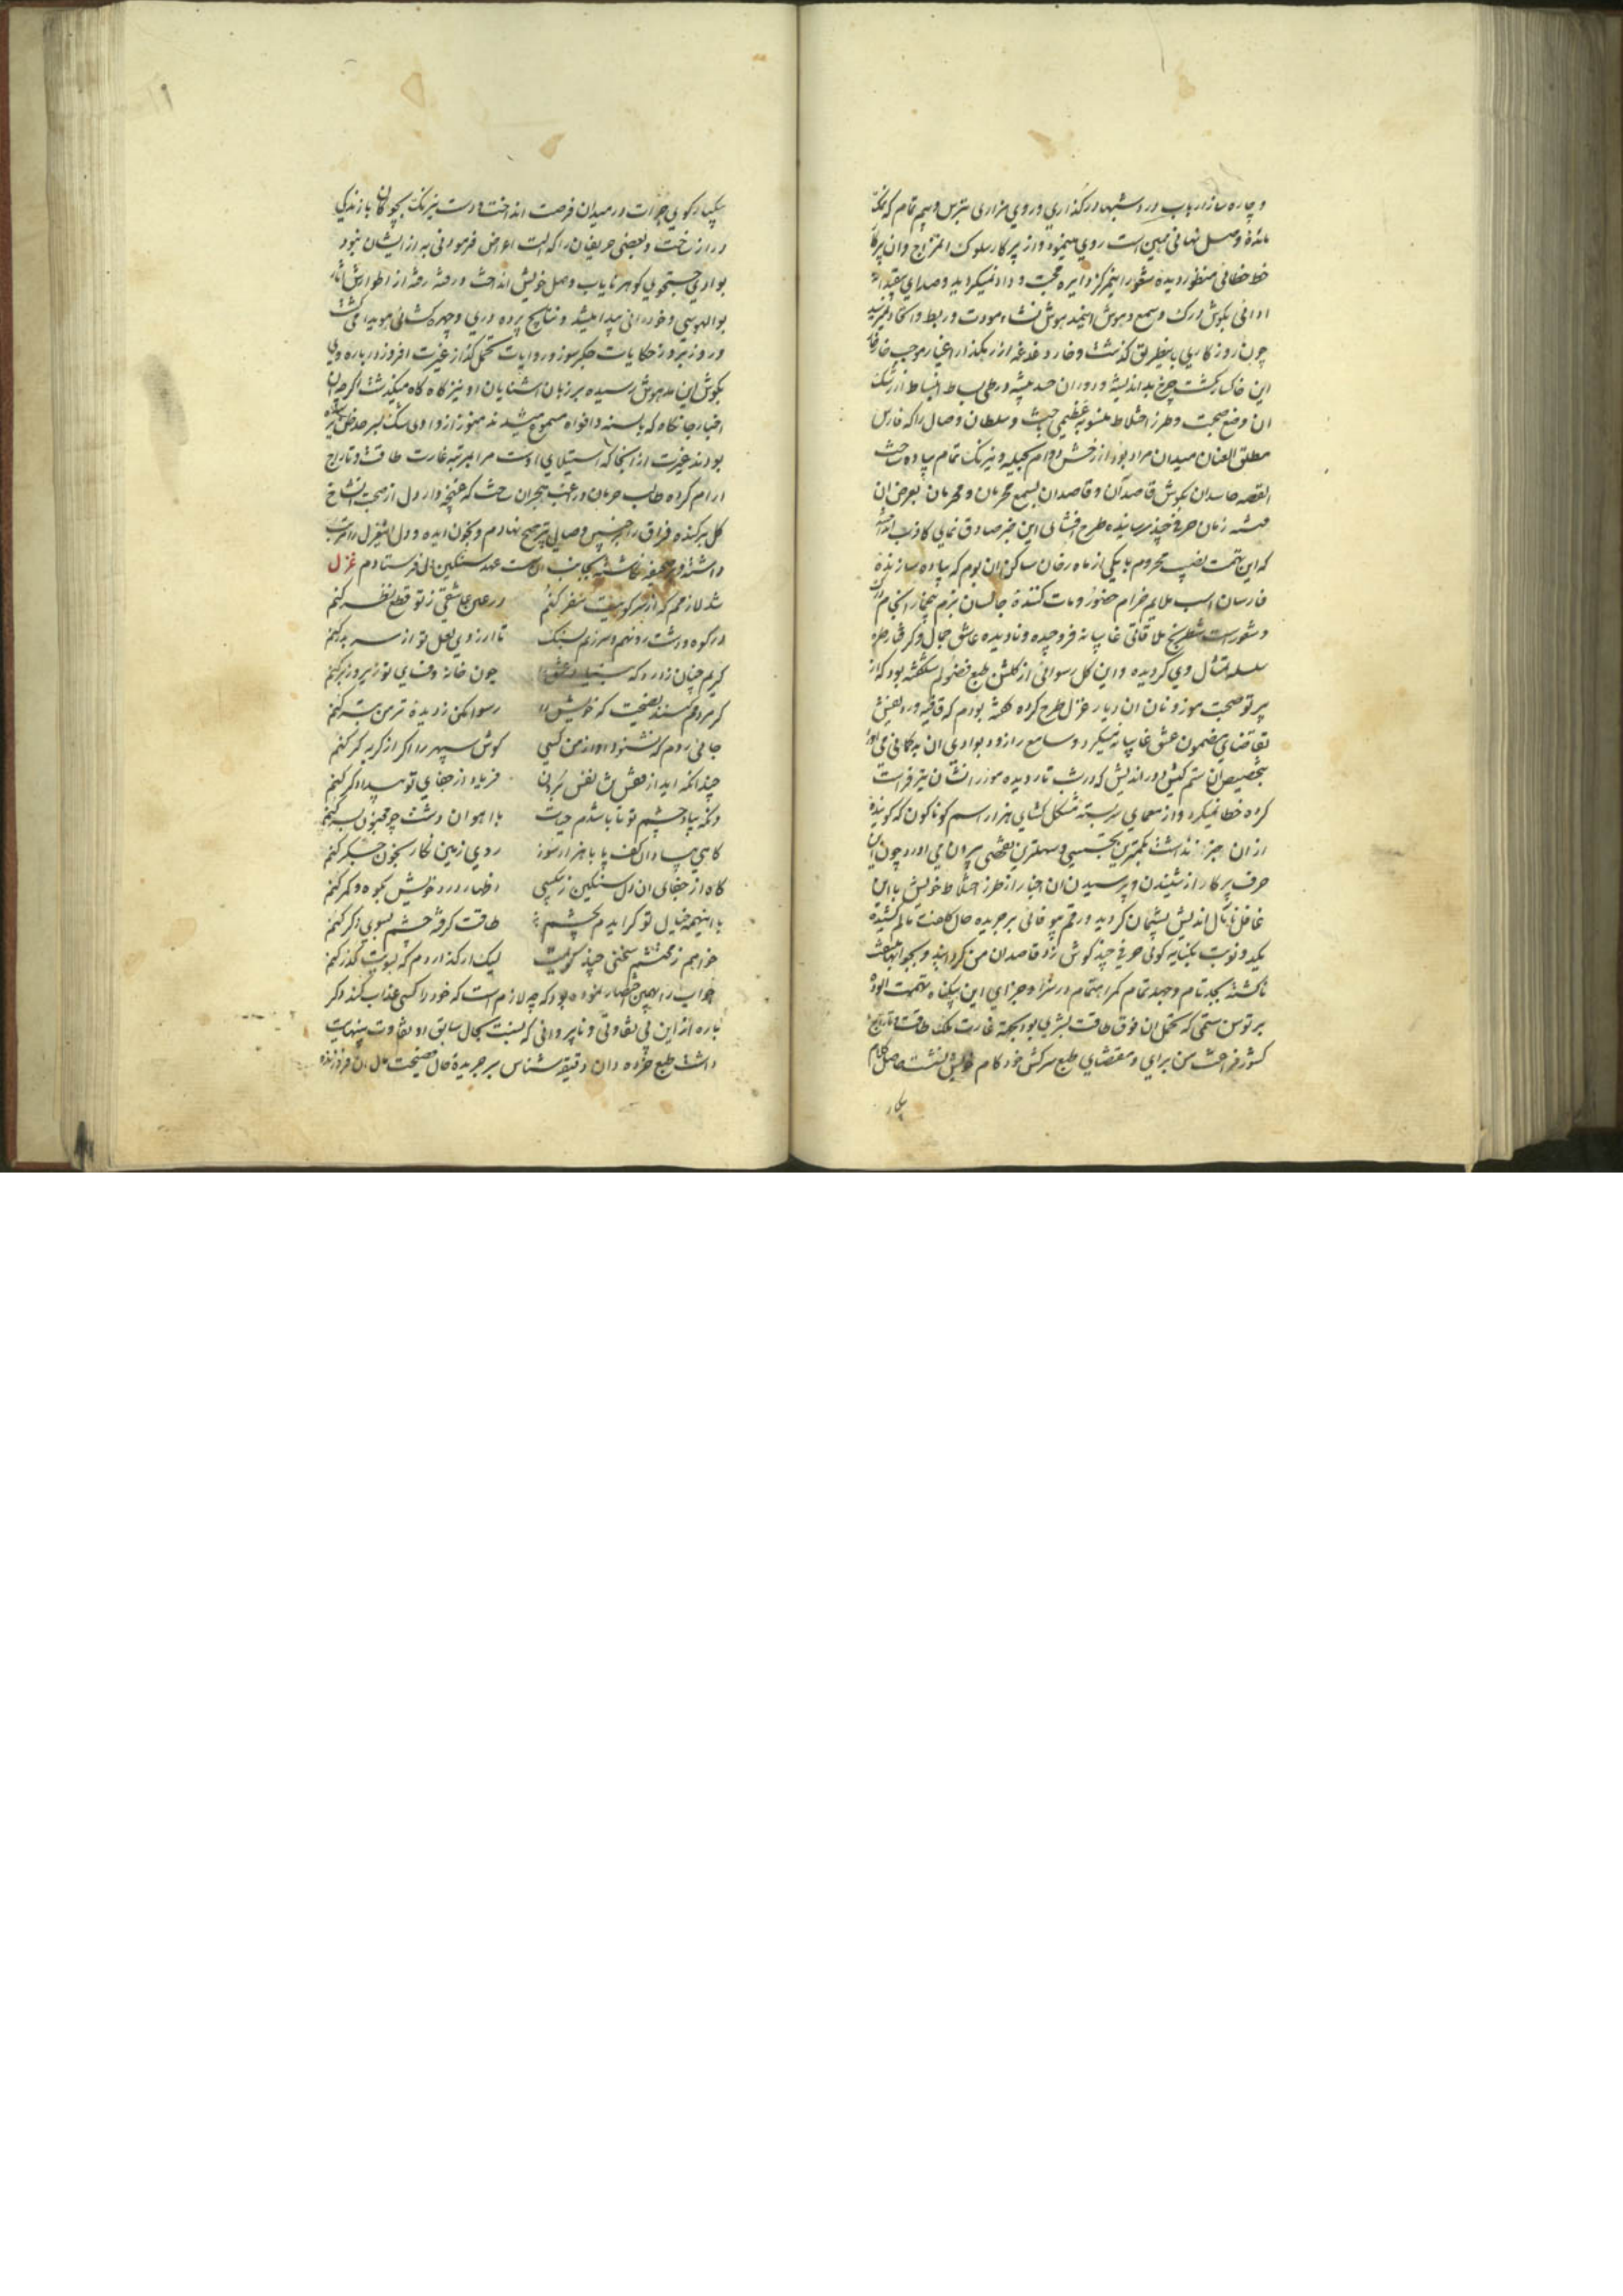 و چاره ساز ارباب در اشبها در کذاری و روی مزاری بترس و بیم تمام که
مائدهٔ وصل نهانی همین است روی مینمود و از پرکار سلوک امتزاج و ان
خط خطائی منظور دیده شعور اینمرکز دایره محبت و وداد نمیکردید و صدای
ادائی بکوش درک و سمع و هوش اینمدهوش نشاء مودت و ربط و اتحاد نمیرسید
چون روزکاری باینطریق کذشت و خار دغدغه از رهکذار اغیار موجب
این خاکسار کشت چرخ بداندیشه و دوران حسد پیشه در طی بساط انبساط از رشک
ان وضع صحبت و طرز اختلاط منسوبه عظیمی چیث و سلطان وصال را که فارس
مطلق العنان میدان مراد بود از رخش دوام بحیله و نیرنک تمام پیاده ساخت
القصه حاسدان بکوش قاصدان و قاصدان بسمع محرمان و محرمان بعرض ان
فتنه زمان حرفی چند رسانیده طرح افشای این خبر صادق نمای کاذب انداخت
که این تهمت نصیب محروم با یکی از ماه رخان ساکن ان بوم که پیاده سازنده
فارسان اسب ملایم خرام حضور و مات کنندهٔ جالسان بزم
و شوراست شطرنج ملاقاتی غایبانه فرو چیده و نادیده عاشق جمال و کرفتار طره
سلسله تمثال وی کردیده و این کل رسوائی از کلشن طبع فضولم شکفته بود که از
پرتو صحبت موزونان ان دیار غزل طرح کرده کفته بودم که قافیه و ردیفش
تقاضای مضمون عشق غایبانه میکرد و سامع را زود بوادی ان بدکمانی می
بتخصیص ان ستم کیش دوراندیش که در شب تار دیده مور را نشان تیر فراست
کرده خطا نمیکرد و از معمای سربسته مشکل کشای هزار اسم کوناکون که کوینده
از ان خبر نداشت بکمترین تجسسی و سهلترین تفحصی بیرون می اورد چون این
حرف پرکار از شنیدن و پرسیدن ان اخبار از طرز اختلاط خویش با این
غافل مآل اندیش پشیمان کردید و رقم بیوفائی بر جریده حال کلفت مالم کشیده
یکدو نوبت بکنایه کوئی حرفی چند کوش زد قاصدان من کردانید و بجوابها ملتفت
ناکشته بجد تمام و جهد تمام کمر اهتمام در سزا و جزای این بیکناه تهمت الوده
بر توسن ستمی که تحمل ان فوق طاقت بشری بود بجهة غارت ملک طاقت و تاراج
کشور فراغت من برای و مقتضای طبع سرکش خودکام خویش نشست حاصل کلام
یکبار
یکبار کوی جرات در میدان فرصت انداخت و دست نیرنک بچوکان بازندکی
دراز ساخت و بعضی حریفان را که الت اعراض فرمودنی به از ایشان نبود
بوادی جستجوی کوهر نایاب وصل خویش انداخت و رفته رفته از اطوارش اثار
بوالهوسی و خودرائی پیدا میشد و نتایج پرده دری و چهره کشائی هویدا می کشت
و روز بروز حکایات جکرسوز و روایات تحمل کداز غیرت افروز درباره وی
بکوش این مدهوش رسیده بر زبان اشنایان او نیز کاه کاه میکذشت اکرچه ان
اخبار جانکاه که بالسنه و افواه مسموع میشد ند هنوز از وادی شک بسر حد یقین
بودند غیرت از انجا که استیلای اوست مرا بمرتبه غارت طاقت و تاراج
ارام کرده طالب حرمان و راغب هجران ساخت که غنچه وار دل از صحبت انشاخ
کل برکنده فراق را بر چنین وصالی ترجیح نهادم و بخون دیده و دل اینغزل را مرتب
داشته در صحیفه غاشیه بجانب ان سست عهد سنکین دل فرستادم غزل
شد لازمم که از سر کویت سفر کنم
در عین عاشقی ز تو قطع نظر کنم
در کوه و دشت رو نهم و سر زنم بسنک
تا ارزوی لعل تو از سر بدر کنم
کریم چنان زار و که بنیاد عشق را
چون خانه وفای تو زیر و زبر کنم
کر مردمم کنند نصیحت که خویش را
رسوا مکن ز دیده تر من بتر کنم
جائی روم که نشنود اواز من کسی
کوش سپهر را اکر از کریه کر کنم
چندانکه اید از نفسش نفس برون
فریاد از جفای تو بیدادکر کنم
وانکه بیاد چشم تو تا باشدم حیات
با اهوان دشت چو مجنون بسر کنم
کاهی بیاد ان کف پا با هزار سوز
روی زمین نکار بخون جکر کنم
کاه از جفای ان دل سنکین ز بیکسی
اظهار درد خویش بکوه و کمر کنم
با اینهمه خیال تو کر ایدم بچشم
طاقت کرفته چشم بسوی دکر کنم
خواهم ز محتشم سخنی چند کویمت
لیک ار کذاردم که بسویت کذر کنم
جواب را بهمین اختصار نموده بود که چه لازم است که خود را کسی عذاب کند دکر
باره از این بی تفاوتی و ناپروائی که نسبت بحال سابق او تفاوت بینهایت
داشت طبع خرده دان دقیقه شناس بر جریدهٔ حال فضیحت مال ان فروزنده